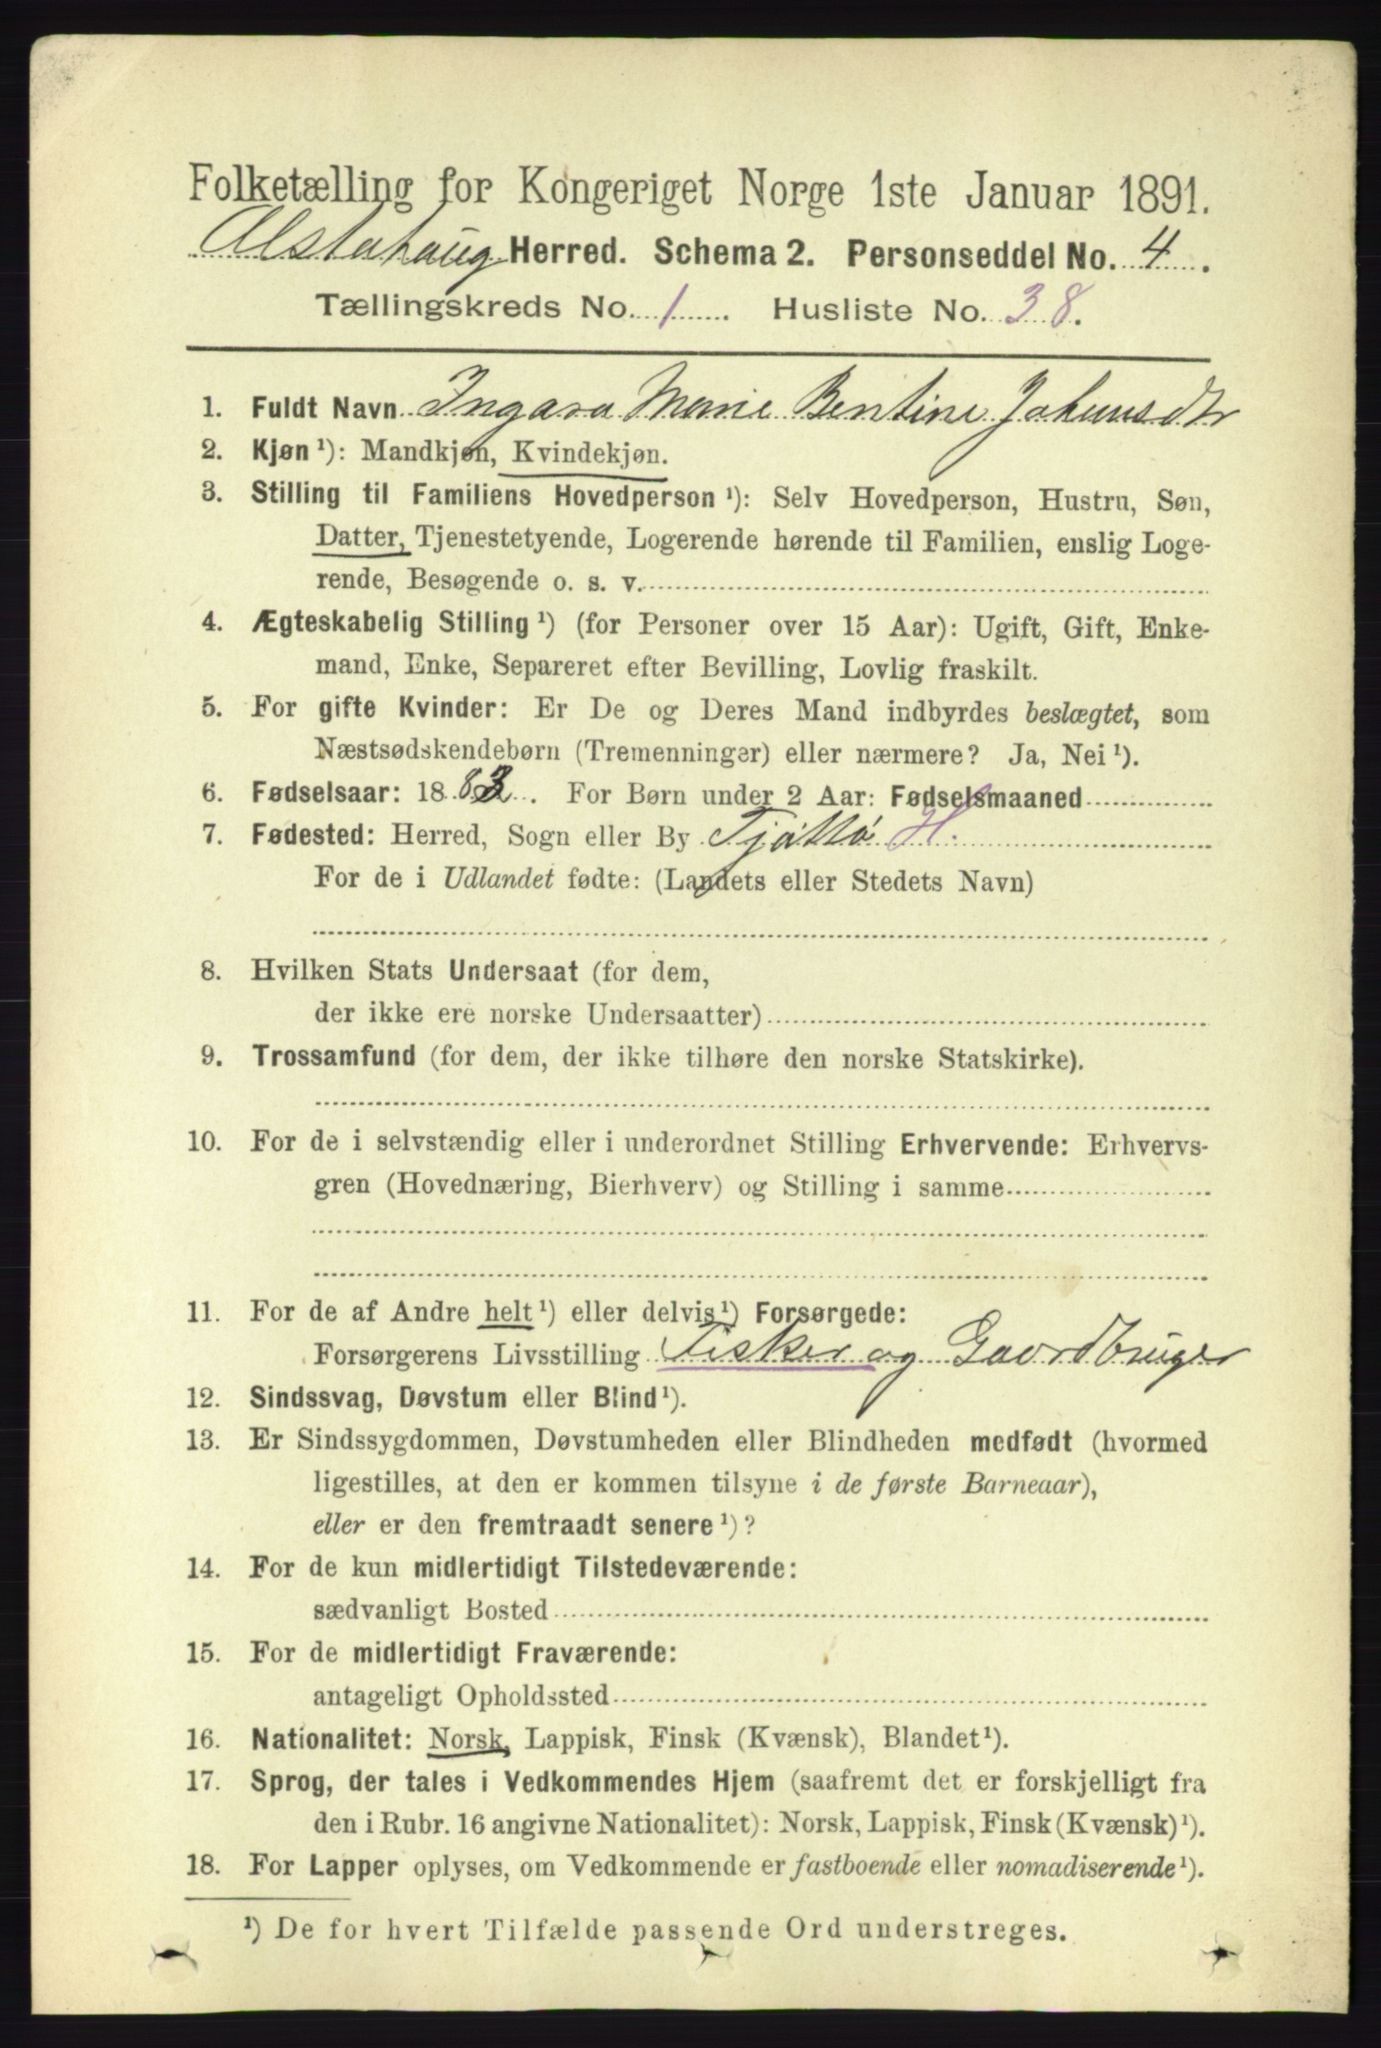 Folketælling for Kongeriget Norge 1ste Januar 1891.
Alstahaug Herred. Schema 2. Personseddel No. 4.
Tællingskreds No. 1. Husliste No. 38.
1. Fuldt Navn Ingara Marie Bentine Johansdtr
2. Kjøn ¹): Mandkjøn, Kvindekjøn.
3. Stilling til Familiens Hovedperson ¹): Selv Hovedperson, Hustru, Søn,
Datter, Tjenestetyende, Logerende hørende til Familien, enslig Loge-
rende, Besøgende o. s. v.
4. Ægteskabelig Stilling ¹) (for Personer over 15 Aar): Ugift, Gift, Enke-
mand, Enke, Separeret efter Bevilling, Lovlig fraskilt.
5. For gifte Kvinder: Er De og Deres Mand indbyrdes beslægtet, som
Næstsødskendebørn (Tremenninger) eller nærmere? Ja, Nei ¹).
6. Fødselsaar: 1883. For Børn under 2 Aar: Fødselsmaaned
7. Fødested: Herred, Sogn eller By Tjøttø H.
For de i Udlandet fødte: (Landets eller Stedets Navn)
8. Hvilken Stats Undersaat (for dem,
der ikke ere norske Undersaatter)
9. Trossamfund (for dem, der ikke tilhøre den norske Statskirke).
10. For de i selvstændig eller i underordnet Stilling Erhvervende: Erhvervs-
gren (Hovednæring, Bierhverv) og Stilling i samme
11. For de af Andre helt ¹) eller delvis ¹) Forsørgede:
Forsørgerens Livsstilling Fisker og Gaardbruger
12. Sindssvag, Døvstum eller Blind ¹).
13. Er Sindssygdommen, Døvstumheden eller Blindheden medfødt (hvormed
ligestilles, at den er kommen tilsyne i de første Barneaar),
eller er den fremtraadt senere ¹)?
14. For de kun midlertidigt Tilstedeværende:
sædvanligt Bosted
15. For de midlertidigt Fraværende:
antageligt Opholdssted
16. Nationalitet: Norsk, Lappisk, Finsk (Kvænsk), Blandet ¹).
17. Sprog, der tales i Vedkommendes Hjem (saafremt det er forskjelligt fra
den i Rubr. 16 angivne Nationalitet): Norsk, Lappisk, Finsk (Kvænsk) ¹).
18. For Lapper oplyses, om Vedkommende er fastboende eller nomadiserende ¹).
¹) De for hvert Tilfælde passende Ord understreges.